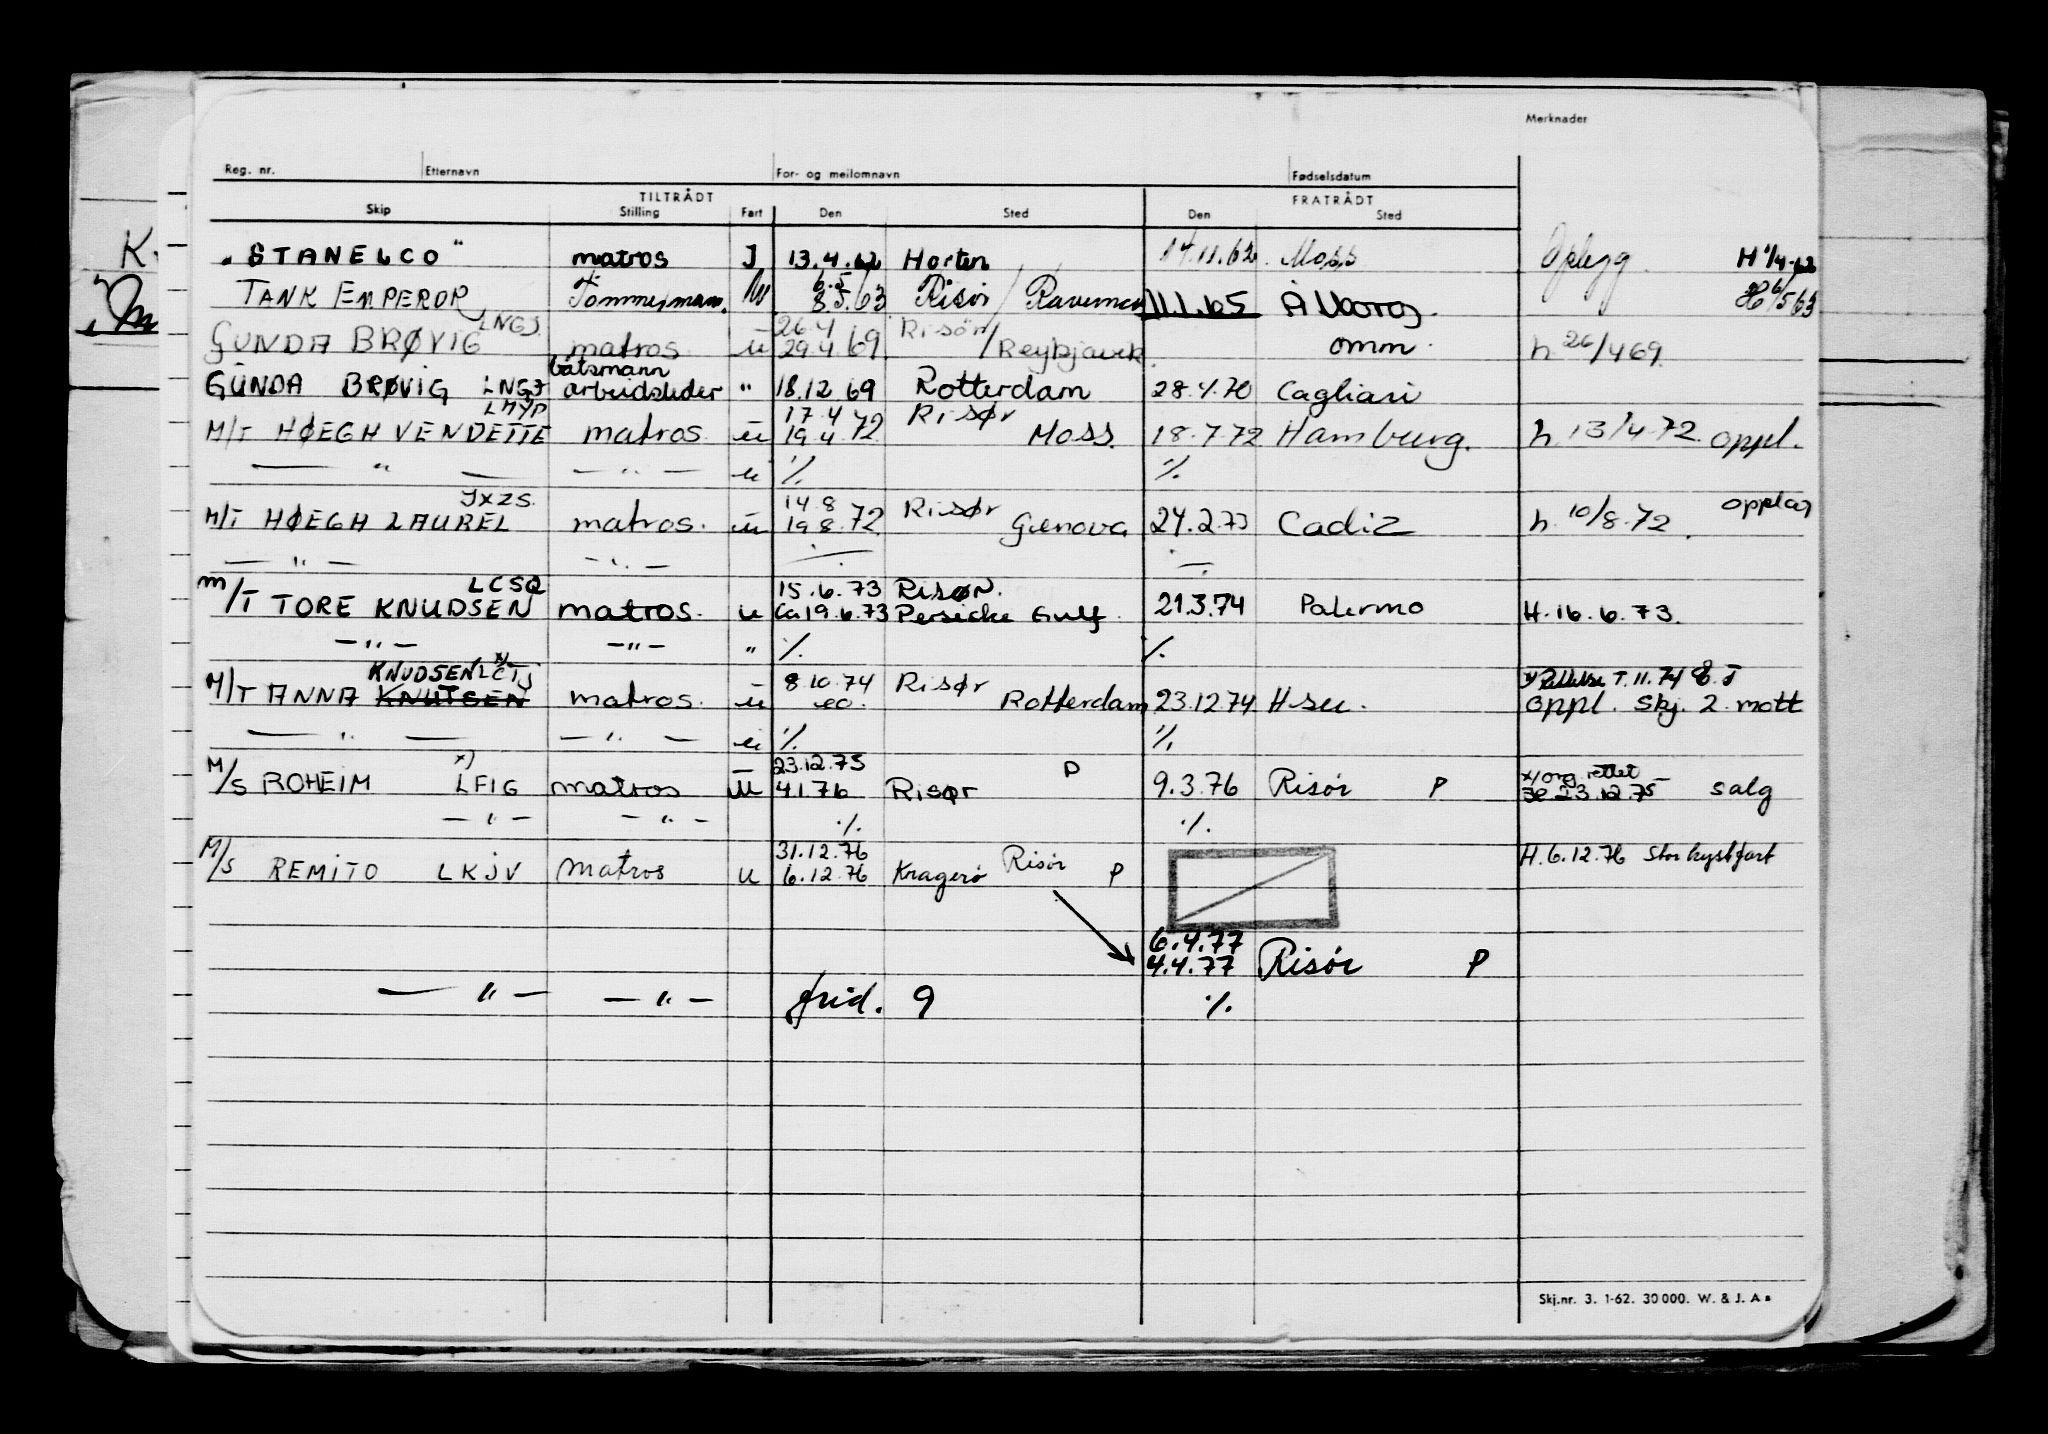 Merknader
Reg. nr. Etternavn For- og mellomnavn Fødselsdatum
TILTRÅDT FRATRÅDT
Skip Stilling Fart Den Sted Den Sted
"STANELCO" matros J 13.4.62 Horten 14.11.62 Moss Opplegg H 11/4-62
TANK EMPEROR Tømmermann 6.5 8.5.63 Risør / Ravenna 11.1.65 H 6/5 63
LNGJ
GUNDA BRØVIG matros u 26.4 29.4.69 Risør / Reykjavik omm. h 26/4 69
båtsmann
GUNDA BRØVIG LNGJ arbeidsleder " 18.12 69 Rotterdam 28.4.70 Cagliari
LHYP
M/T HØEGH VENDETTE matros u 17.4 19.4.72 Risør Moss. 18.7.72 Hamburg. h 13/4-72 oppl.
— " — — " — u ./. ./.
JXZS.
M/T HØEGH LAUREL matros. u 14.8 19.8.72 Risør Genova 24.2.73 Cadiz h. 10/8-72.
— " — — " — ./. ./.
LCSQ 15.6.73 Risør.
M/T TORE KNUDSEN matros. u ca 19.6.73 Persiske Gulf. 21.3.74 Palermo H. 16.6.73.
— " — — " — " ./. ./.
KNUDSEN LCTJ x)
M/T ANNA KNUTSEN matros. u 8.10.74 Risør Rotterdam 23.12.74 H-see. x) Rettelse T. 11.74
oppl. Skj. 2. mott
— " — — " — u ./. ./.
x) 23.12.75 P
M/S ROHEIM LFIG matros u 4.1.76 Risør 9.3.76 Risør P x) org. rettet 23.12.75 salg
— " — — " — ./. ./.
31.12.76 Risør H. 6.12.76 Stor kystfart
M/S REMITO LKJV matros u 6.12.76 Kragerø P
6.4.77
4.4.77 Risør P
— " — — " — frid. 9 ./.
Skj.nr. 3. 1-62. 30 000. W. & J. A s
K.